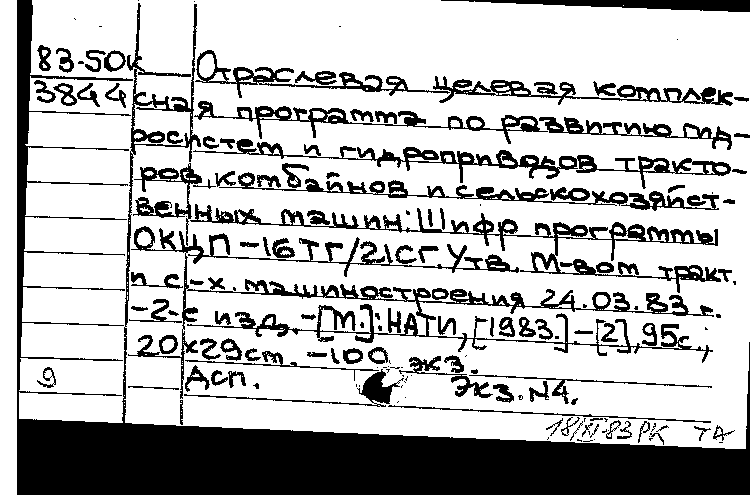 83-50к
3844
Отраслевая целевая комплек-
сная программа по развитию гид-
росистем и гидроприводов тракто-
ров, комбайнов и сельскохозяйст-
венных машин: Шифр программы
ОКЦП-16ТГ/21СГ. Утв. М-вом тракт.
и с.-х. машиностроения 24.03.83 г.
-2-е изд. -[М.]: НАТИ, [1983.] -[2], 95с.;
20×29см. -100 экз.
9 Дсп. Экз. N4.
18/XI-83 РК ТА